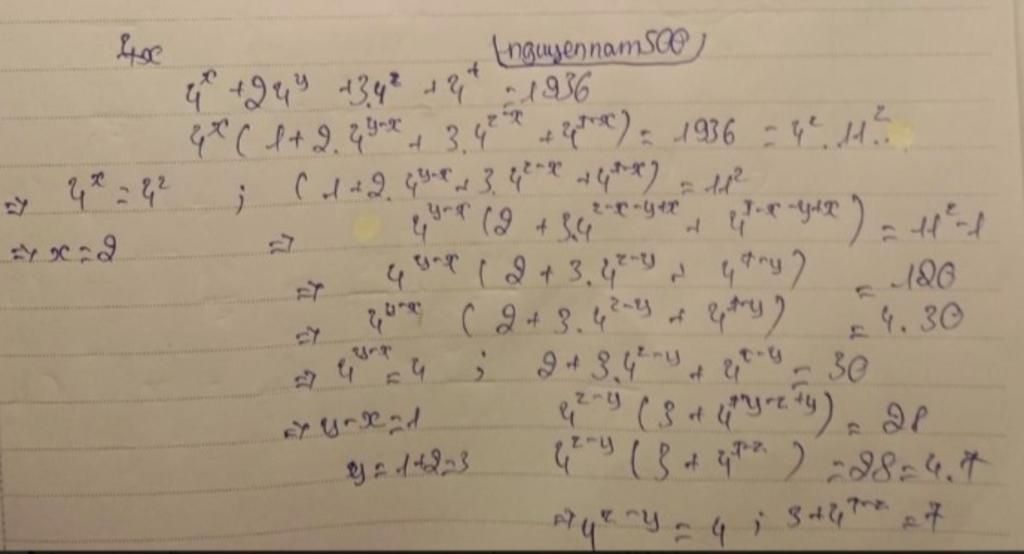 4x nguyennam500
4^x + 2 4^y + 3.4^z + 4^t = 1936
4^x ( 1 + 2. 4^{y-x} + 3. 4^{z-x} + 4^{t-x} ) = 1936 = 4^2 . 11^2
⇒ 4^x = 4^2 ; ( 1 + 2. 4^{y-x} + 3. 4^{z-x} + 4^{t-x} ) = 11^2
⇒ x = 2 ⇒ 4^{y-x} ( 2 + 3.4^{z-x-y+x} + 4^{t-x-y+x} ) = 11^2 - 1
⇒ 4^{y-x} ( 2 + 3. 4^{z-y} + 4^{t-y} ) = 120
⇒ 4^{y-x} ( 2 + 3. 4^{z-y} + 4^{t-y} ) = 4. 30
⇒ 4^{y-x} = 4 ; 2 + 3. 4^{z-y} + 4^{t-y} = 30
⇒ y-x = 1 4^{z-y} ( 3 + 4^{t-y-z+y} ) = 28
y = 1+2=3 4^{z-y} ( 3 + 4^{t-z} ) = 28 = 4.7
⇒ 4^{z-y} = 4 ; 3 + 4^{t-z} = 7